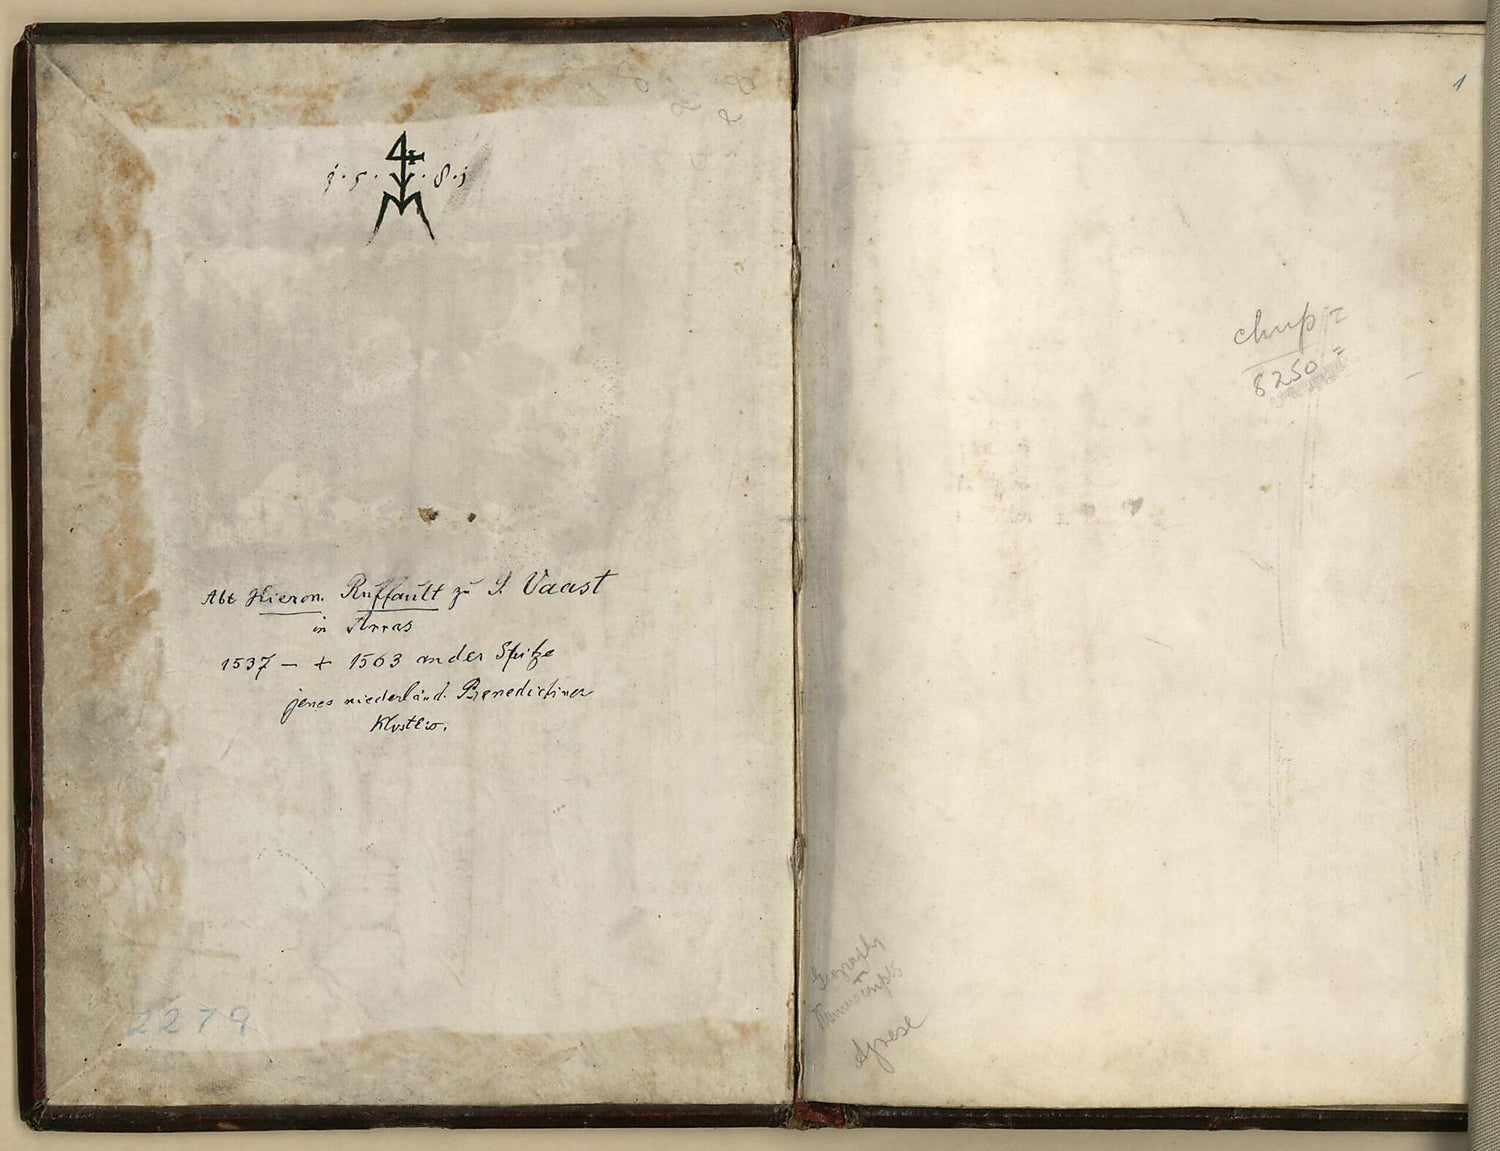 1·5· ·8·1
Abt Hieron. Ruffault zu S. Vaast
in Arras
1537 – + 1563 an der Spitze
jenes niederländ. Benedictiner
Klosters.
2279
1
8250
Geography
Manuscripts
Agnese